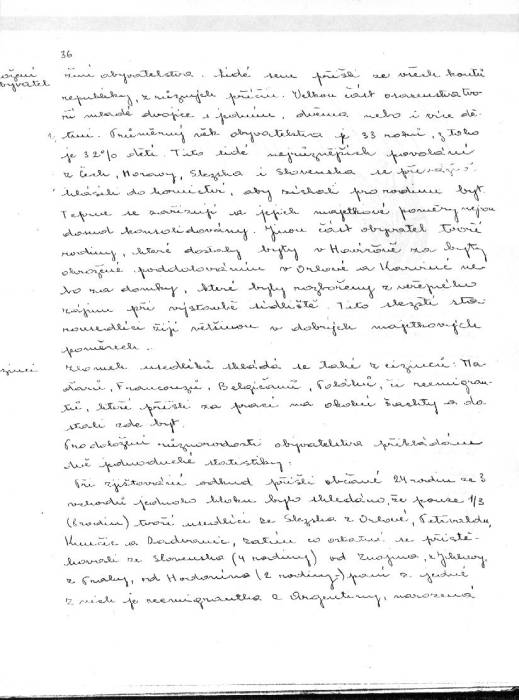 36
ření obyvatelstva. Lidé sem přišli ze všech koutů
obyvatel
republiky, z různých příčin. Velkou část osazenstva tvo-
ří mladé dvojice s jedním, dvěma nebo i více dět-
mi. Průměrný věk obyvatelstva je 33 roků, z toho
je 32% dětí. Tito lidé nejrůznějších povolání
z Čech, Moravy, Slezska i Slovenska se převážně
hlásili do hornictví, aby získali pro rodinu byt.
Teprve se zařizují a jejich majetkové poměry nejsou
dosud konsolidovány. Jinou část obyvatel tvoří
rodiny, které dostaly byty v Havířově za byty
ohrožené poddolováním v Orlové a Karviné ne-
bo za domky, které byly rozbořeny z veřejného
zájmu při výstavbě sídliště. Tito slezští sta-
rousedlíci žijí většinou v dobrých majetkových
poměrech.
cizinci
Zlomek usedlíků skládá se také z cizinců: Ma-
ďarů, Francouzů, Belgičanů, Poláků, či reemigran-
tů, kteří přišli za prací na okolní šachty a do-
stali zde byt.
Pro doložení různorodosti obyvatelstva přikládám
jednoduché statistiky:
Při zjišťování odkud přišli občané 24 rodin ze 3
vchodů jednoho bloku bylo shledáno, že pouze 1/3
(8 rodin) tvoří usedlíci ze Slezska z Orlové, Petřvaldu,
Kunčic a Radvanic, zatím co ostatní se přistě-
hovali ze Slovenska (4 rodiny) od Znojma, z Jihlavy,
z Prahy, od Hodonína (2 rodiny) paní z jedné
z nich je reemigrantka z Argentiny, narozená